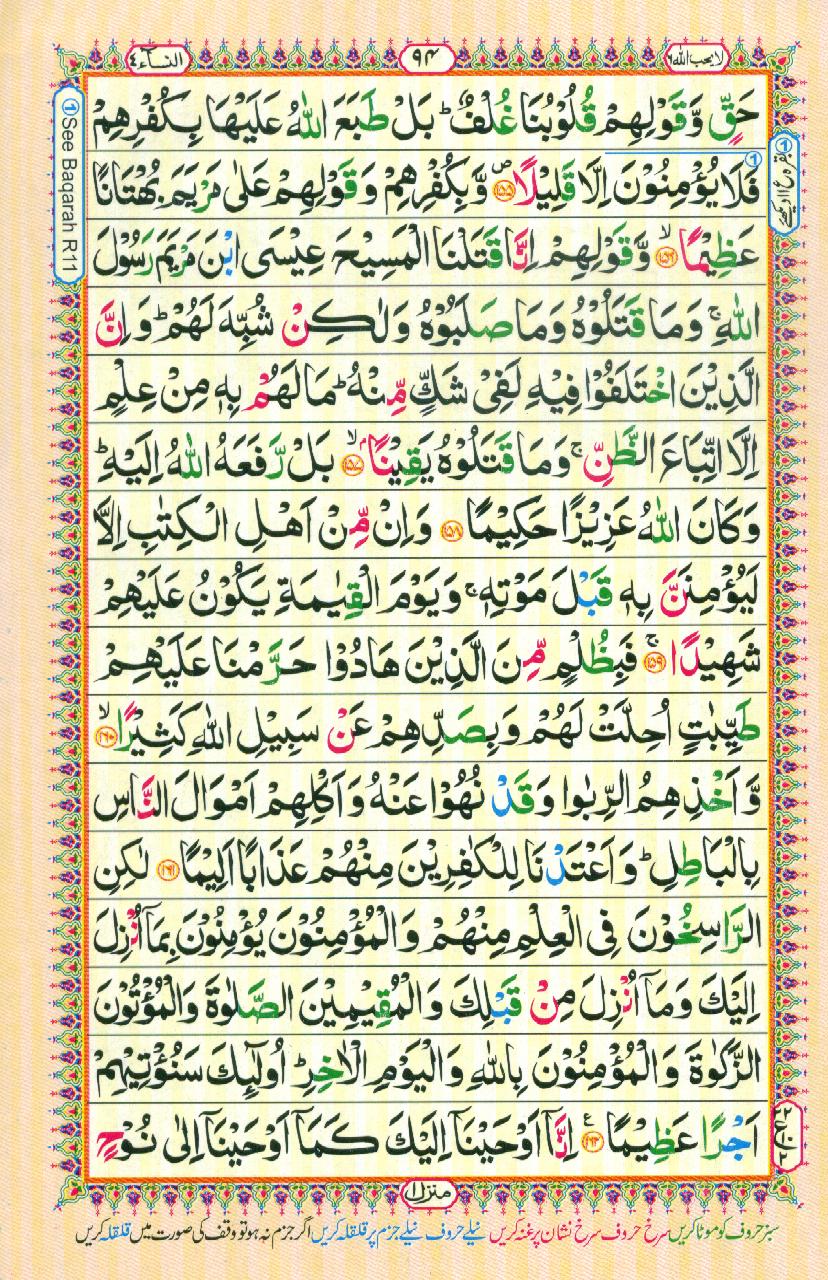 لا یحب اللہ ٦
٩٤
النسآء ٤
حَقٍّ وَّقَوْلِهِمْ قُلُوْبُنَا غُلْفٌ ؕ بَلْ طَبَعَ اللّٰهُ عَلَيْهَا بِكُفْرِهِمْ
فَلَا يُؤْمِنُوْنَ اِلَّا قَلِيْلًا ۪﴿١٥٥﴾ وَّبِكُفْرِهِمْ وَقَوْلِهِمْ عَلٰى مَرْيَمَ بُهْتَانًا
عَظِيْمًا ۙ﴿١٥٦﴾ وَّقَوْلِهِمْ اِنَّا قَتَلْنَا الْمَسِيْحَ عِيْسَى ابْنَ مَرْيَمَ رَسُوْلَ
اللّٰهِ ۚ وَمَا قَتَلُوْهُ وَمَا صَلَبُوْهُ وَلٰكِنْ شُبِّهَ لَهُمْ ؕ وَاِنَّ
الَّذِيْنَ اخْتَلَفُوْا فِيْهِ لَفِيْ شَكٍّ مِّنْهُ ؕ مَا لَهُمْ بِهٖ مِنْ عِلْمٍ
اِلَّا اتِّبَاعَ الظَّنِّ ۚ وَمَا قَتَلُوْهُ يَقِيْنًا ۙ﴿١٥٧﴾ بَلْ رَّفَعَهُ اللّٰهُ اِلَيْهِ ؕ
وَكَانَ اللّٰهُ عَزِيْزًا حَكِيْمًا ﴿١٥٨﴾ وَاِنْ مِّنْ اَهْلِ الْكِتٰبِ اِلَّا
لَيُؤْمِنَنَّ بِهٖ قَبْلَ مَوْتِهٖ ۚ وَيَوْمَ الْقِيٰمَةِ يَكُوْنُ عَلَيْهِمْ
شَهِيْدًا ۚ﴿١٥٩﴾ فَبِظُلْمٍ مِّنَ الَّذِيْنَ هَادُوْا حَرَّمْنَا عَلَيْهِمْ
طَيِّبٰتٍ اُحِلَّتْ لَهُمْ وَبِصَدِّهِمْ عَنْ سَبِيْلِ اللّٰهِ كَثِيْرًا ۙ﴿١٦٠﴾
وَّاَخْذِهِمُ الرِّبٰوا وَقَدْ نُهُوْا عَنْهُ وَاَكْلِهِمْ اَمْوَالَ النَّاسِ
بِالْبَاطِلِ ؕ وَاَعْتَدْنَا لِلْكٰفِرِيْنَ مِنْهُمْ عَذَابًا اَلِيْمًا ﴿١٦١﴾ لٰكِنِ
الرَّاسِخُوْنَ فِي الْعِلْمِ مِنْهُمْ وَالْمُؤْمِنُوْنَ يُؤْمِنُوْنَ بِمَاۤ اُنْزِلَ
اِلَيْكَ وَمَاۤ اُنْزِلَ مِنْ قَبْلِكَ وَالْمُقِيْمِيْنَ الصَّلٰوةَ وَالْمُؤْتُوْنَ
الزَّكٰوةَ وَالْمُؤْمِنُوْنَ بِاللّٰهِ وَالْيَوْمِ الْاٰخِرِ ؕ اُولٰٓئِكَ سَنُؤْتِيْهِمْ
اَجْرًا عَظِيْمًا ﴿١٦٢﴾ اِنَّاۤ اَوْحَيْنَاۤ اِلَيْكَ كَمَاۤ اَوْحَيْنَاۤ اِلٰى نُوْحٍ
① See Baqarah R11
منزل ١
سبز حروف کو موٹا کریں سرخ حروف سرخ نشان پر غنہ کریں نیلے حروف نیلے جزم پر قلقلہ کریں اگر جزم نہ ہو تو وقف کی صورت میں قلقلہ کریں